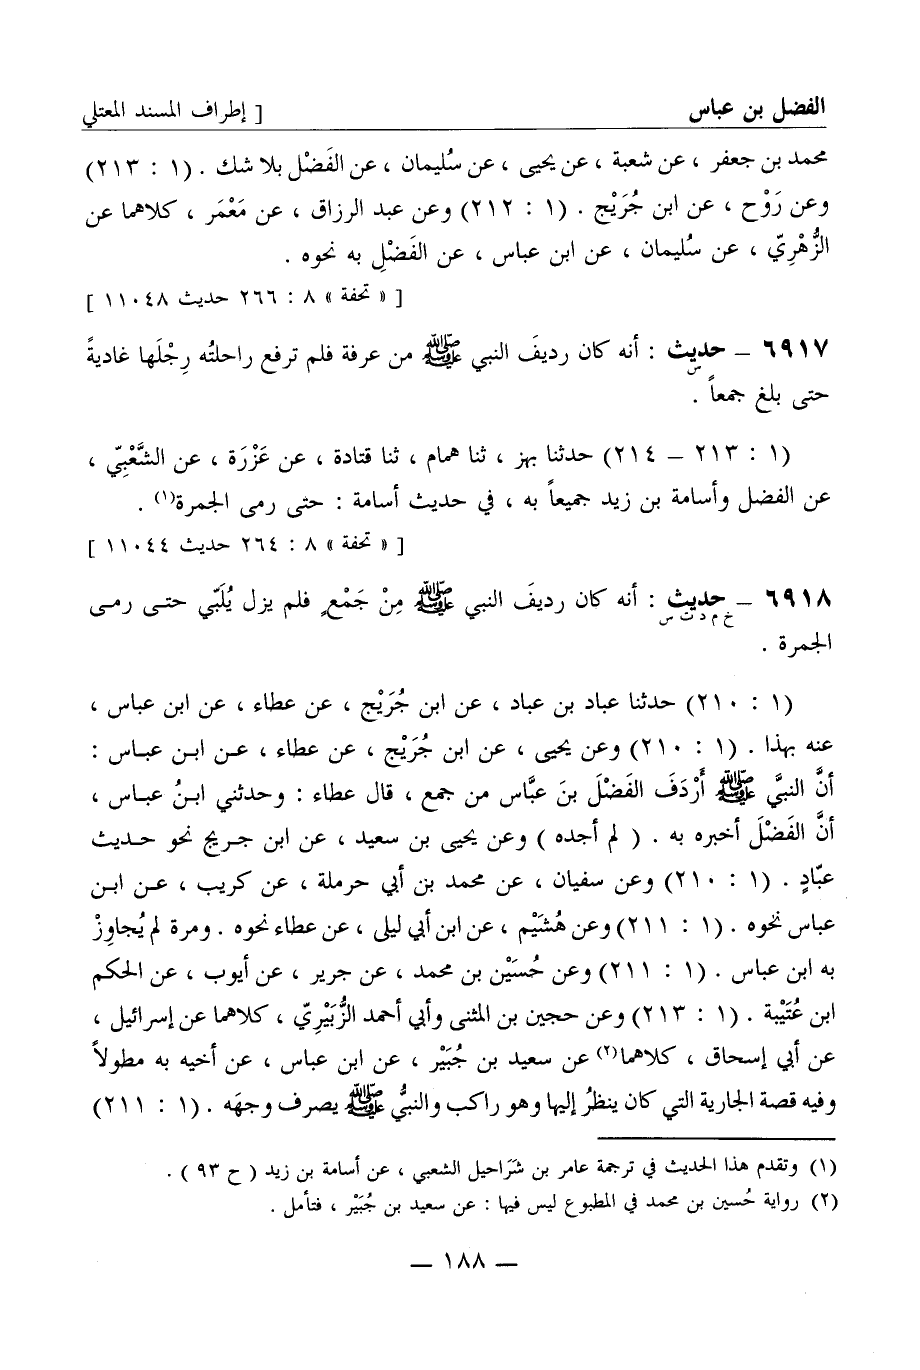 الفضل بن عباس [ إطراف المسند المعتلي
محمد بن جعفر ، عن شعبة ، عن يحيى ، عن سُليمان ، عن الفَضْل بلا شك . (١ : ٢١٣)
وعن رَوْح ، عن ابن جُرَيْج . (١ : ٢١٢) وعن عبد الرزاق ، عن مَعْمَر ، كلاهما عن
الزُّهْرِيّ ، عن سُليمان ، عن ابن عباس ، عن الفَضْلِ به نحوه .
[ « تحفة » ٨ : ٢٦٦ حديث ١١٠٤٨ ]
٦٩١٧ – حديث : أنه كان رديفَ النبي ﷺ من عرفة فلم ترفع راحلتُه رِجْلَها غاديةً
س
حتى بلغ جمعاً .
(١ : ٢١٣ – ٢١٤) حدثنا بهز ، ثنا همام ، ثنا قتادة ، عن عَزْرَة ، عن الشَّعْبِيّ ،
عن الفضل وأسامة بن زيد جميعاً به ، في حديث أسامة : حتى رمى الجمرة(١) .
[ « تحفة » ٨ : ٢٦٤ حديث ١١٠٤٤ ]
٦٩١٨ – حديث : أنه كان رديفَ النبي ﷺ مِنْ جَمْعٍ فلم يزل يُلَبّي حتى رمى
خ م د ت س
الجمرة .
(١ : ٢١٠) حدثنا عباد بن عباد ، عن ابن جُرَيْج ، عن عطاء ، عن ابن عباس ،
عنه بهذا . (١ : ٢١٠) وعن يحيى ، عن ابن جُرَيْج ، عن عطاء ، عن ابن عباس :
أنَّ النبيَّ ﷺ أَرْدَفَ الفَضْلَ بنَ عبَّاس من جمع ، قال عطاء : وحدثني ابنُ عباس ،
أنَّ الفَضْلَ أخبره به . ( لم أجده ) وعن يحيى بن سعيد ، عن ابن جريج نحو حديث
عبّادٍ . (١ : ٢١٠) وعن سفيان ، عن محمد بن أبي حرملة ، عن كريب ، عن ابن
عباس نحوه . (١ : ٢١١) وعن هُشَيْم ، عن ابن أبي ليلى ، عن عطاء نحوه . ومرة لم يُجاوِزْ
به ابن عباس . (١ : ٢١١) وعن حُسَيْن بن محمد ، عن جرير ، عن أيوب ، عن الحكم
ابن عُتَيْبة . (١ : ٢١٣) وعن حجين بن المثنى وأبي أحمد الزُّبَيْرِيّ ، كلاهما عن إسرائيل ،
عن أبي إسحاق ، كلاهما(٢) عن سعيد بن جُبَيْر ، عن ابن عباس ، عن أخيه به مطولاً
وفيه قصة الجارية التي كان ينظرُ إليها وهو راكب والنبيُّ ﷺ يصرف وجهَه . (١ : ٢١١)
(١) وتقدم هذا الحديث في ترجمة عامر بن شَرَاحيل الشعبي ، عن أسامة بن زيد ( ح ٩٣ ) .
(٢) رواية حُسين بن محمد في المطبوع ليس فيها : عن سعيد بن جُبَيْر ، فتأمل .
– ١٨٨ –